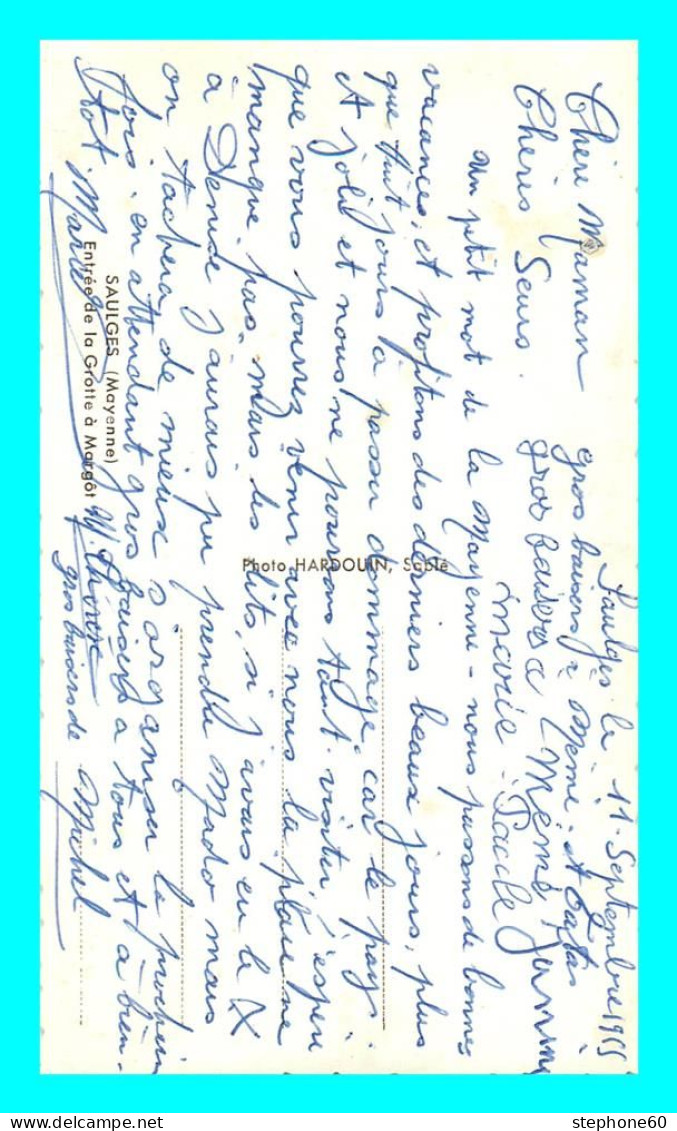 Saulges le 11 Septembre 1965
Chère Maman
Chéris Seurs.
gros baisers à Mémé. et Tatas
gros baisers à Mémé Janine
marie - Paule
un petit mot de la Mayenne - nous passons de bonnes
vacances, et profitons des derniers beaux jours, plus
que huit jours à passer dommage car le pays
et joli et nous ne pourrons tout visiter j'espère
que vous pourrez venir avec nous la place ne
manque pas mais les lits, si j'avais eu le
à Denise j'aurais pu prendre Mado mais
on tachera de mieux s'organiser la prochain
fois, en attendant gros baisers a tous et à bien-
tot. Marcel
gros baisers de Michel
SAULGES (Mayenne)
Entrée de la Grotte à Margôt
Photo HARDOUIN, Sablé
stephone60